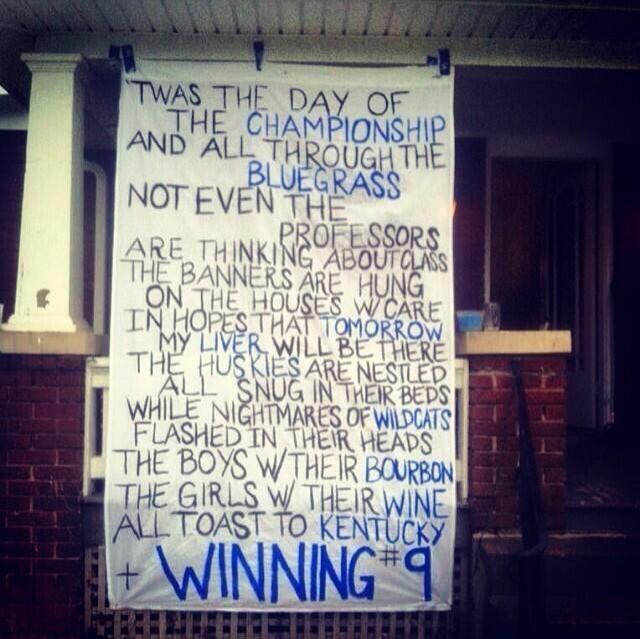 'TWAS THE DAY OF
THE CHAMPIONSHIP
AND ALL THROUGH THE
BLUEGRASS
NOT EVEN THE
PROFESSORS
ARE THINKING ABOUT CLASS
THE BANNERS ARE HUNG
ON THE HOUSES W/ CARE
IN HOPES THAT TOMORROW
MY LIVER WILL BE THERE
THE HUSKIES ARE NESTLED
ALL SNUG IN THEIR BEDS
WHILE NIGHTMARES OF WILDCATS
FLASHED IN THEIR HEADS
THE BOYS W/ THEIR BOURBON
THE GIRLS W/ THEIR WINE
ALL TOAST TO KENTUCKY
+ WINNING #9